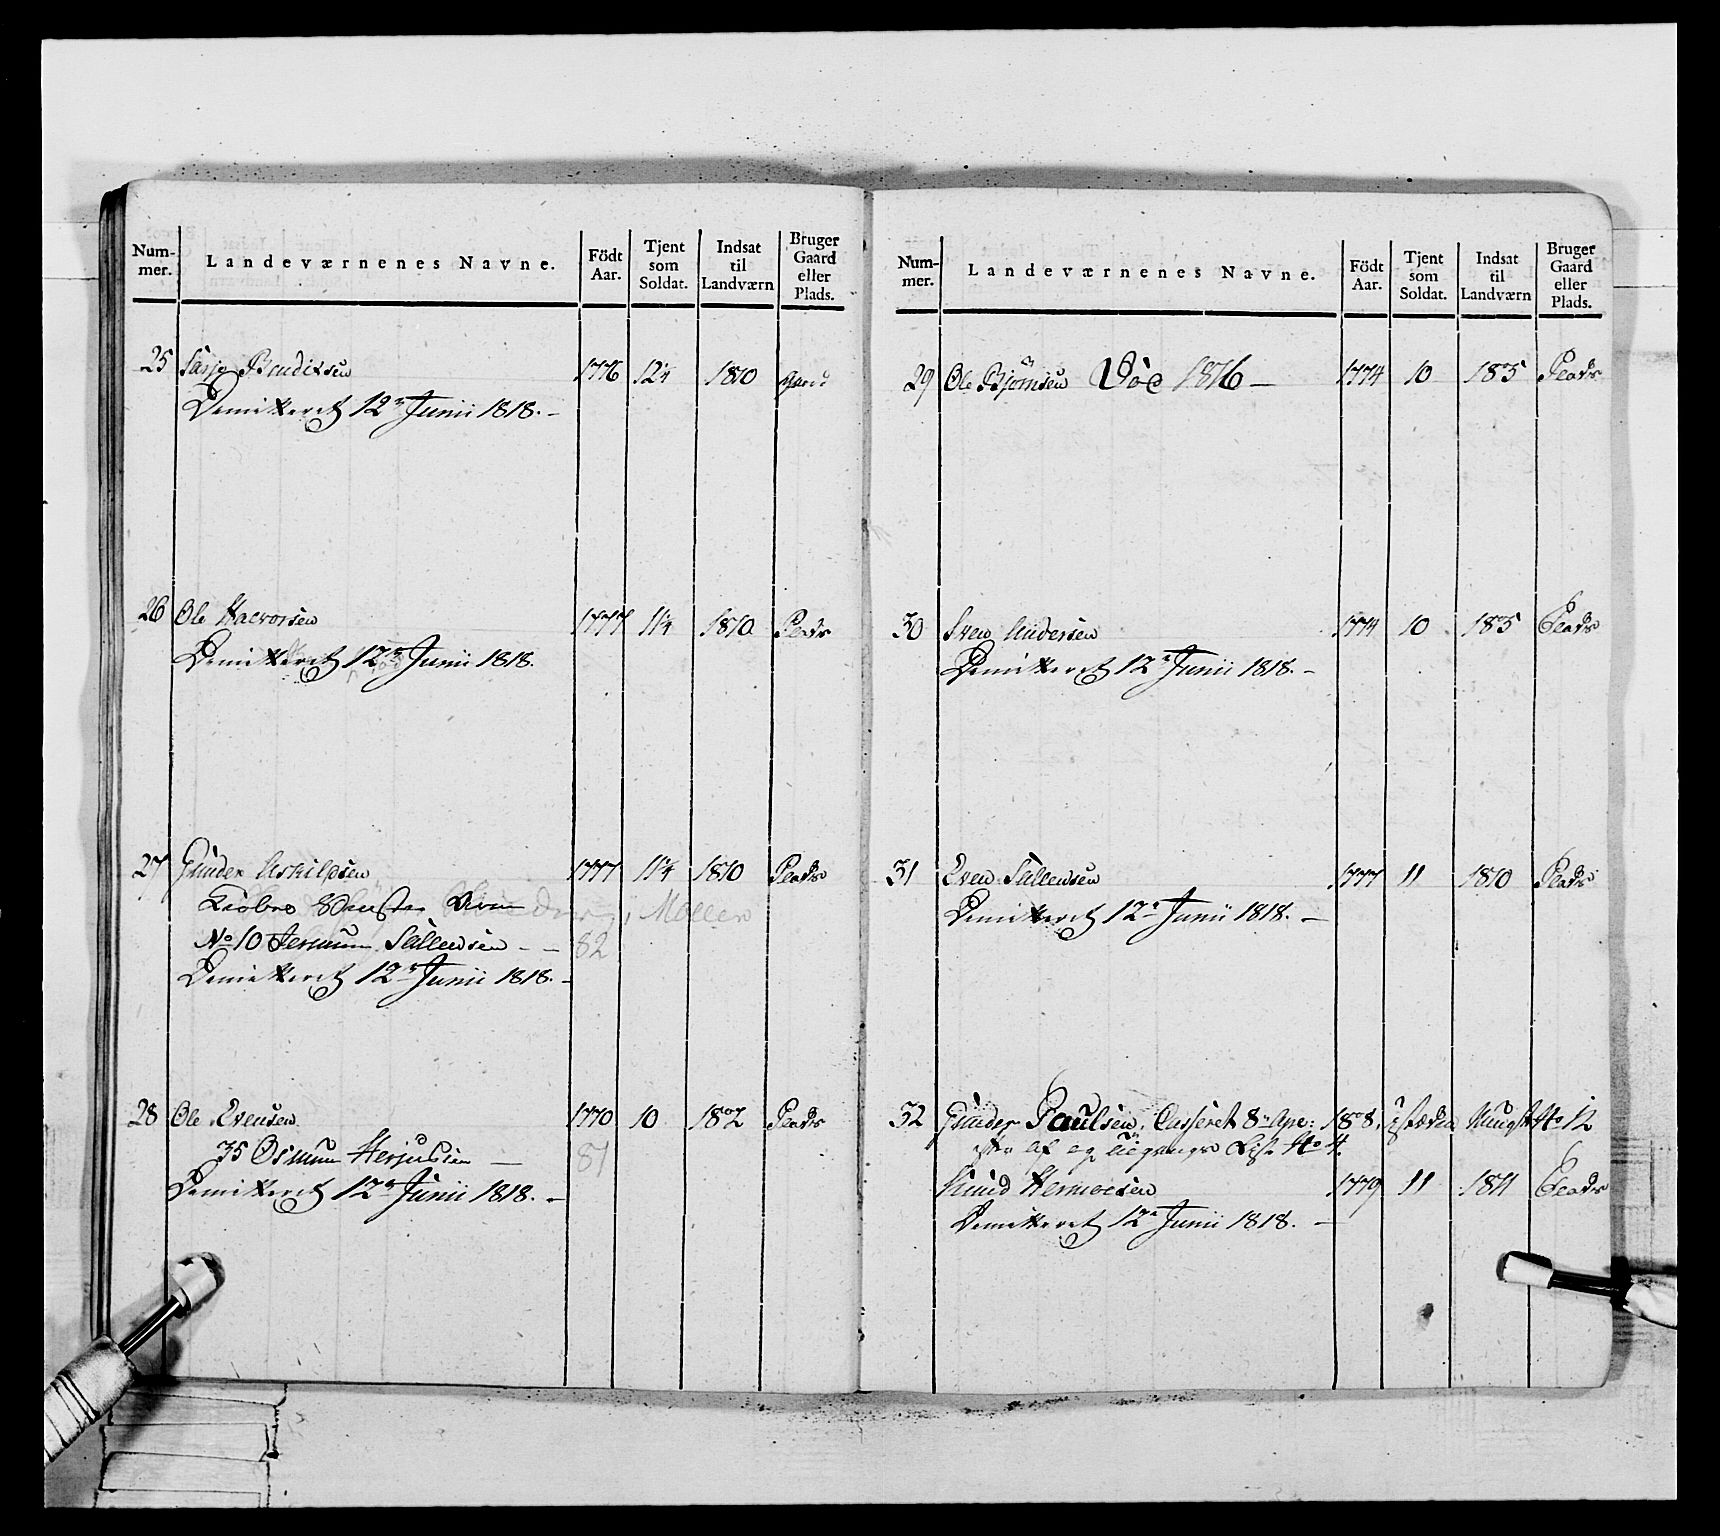 Num-mer. Landeværnenes Navne. Födt Aar. Tjent som Soldat. Indsat til Landværn Bruger Gaard eller Plads.
25 Tarje 1776 12¼ 1810 Gaard
Demitteret 12te Junii 1818. –
26 Ole Halvorsen 1777 11¼ 1810 Plads
Demitteret 12te Junii 1818.
27 Gunder Askildsen 1777 11¼ 1810 Plads
No 10 Tellevsen - - 82
Demitteret 12te Junii 1818. –
28 Ole Evensen 1770 10 1802 Plads
35 Osmun Herjussen — 81
Demitteret 12te Junii 1818. –
Num-mer. Landeværnenes Navne. Födt Aar. Tjent som Soldat. Indsat til Landværn Bruger Gaard eller Plads.
29 Ole Bjørnsen Död 1816 — 1774 10 1805 Plads
30 Sven Andersen 1774 10 1805 Plads
Demitteret 12te Junii 1818. –
31 Even Tellevsen 1777 11 1810 Plads
Demitteret 12te Junii 1818. —
32 Gunder Paulsen, Casseret 8de Apr: 1808, No 12
No 4.
Knud 1779 11 1811 Plads
Demitteret 12te Junii 1818. —